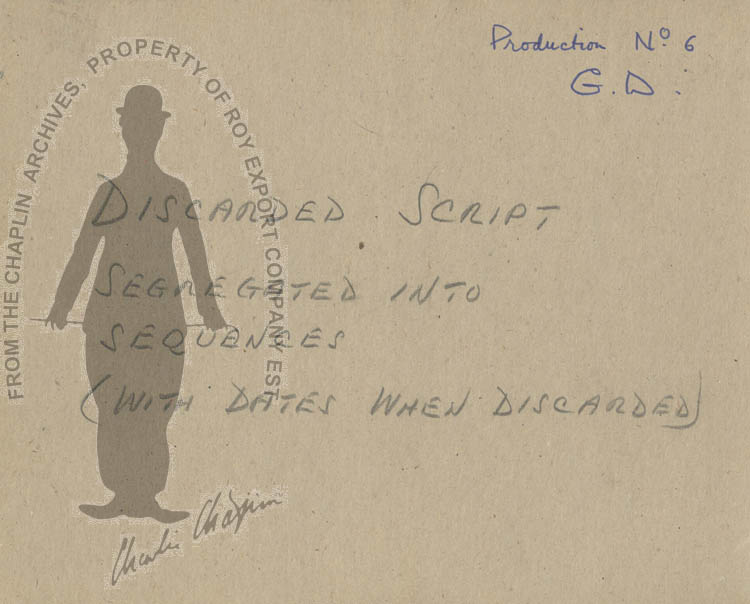 Production Nº 6
G.D.
DISCARDED SCRIPT
SEGREGATED INTO
SEQUENCES
(WITH DATES WHEN DISCARDED)
FROM THE CHAPLIN ARCHIVES, PROPERTY OF ROY EXPORT COMPANY EST
Charlie Chaplin